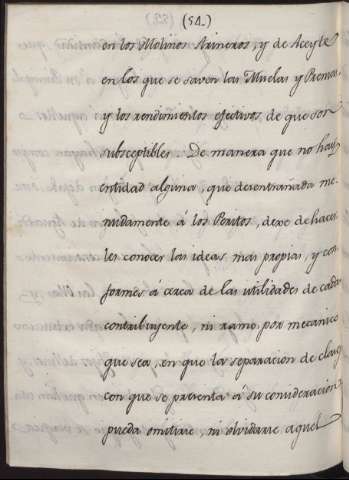 (51.)
en los Molinos Arineros, y de Aceyte
en los que se saven las Muelas y Prensas,
y los rendimientos efectivos de que son
subsceptibles. De manera que no hay
entidad alguna, que desentrañada me-
nudamente á los Peritos, dexe de hacer
les conocer las ideas mas propias, y con
formes á cerca de las utilidades de cada
contribuyente, ni ramo por mecanico
que sea, en que la separacion de clases
con que se presenta á su consideracion
pueda omitirse, ni olvidarse aquel